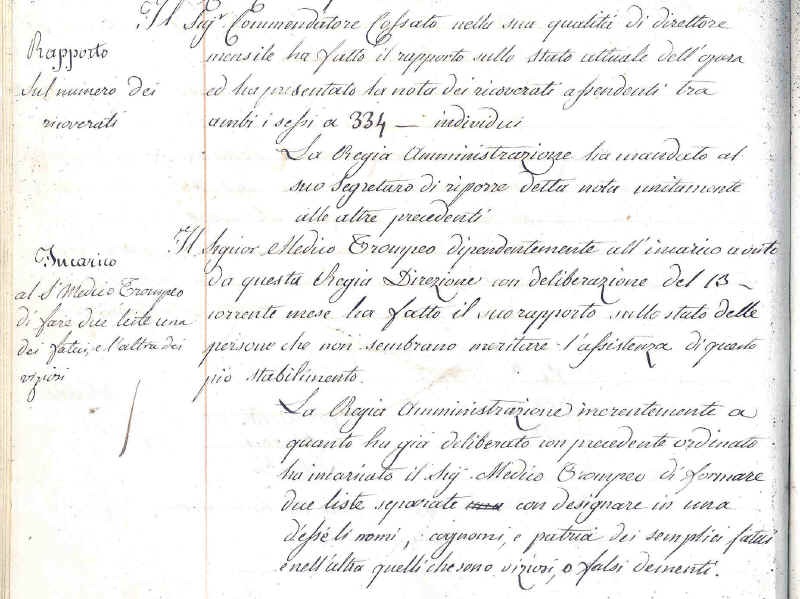 Rapporto
sul numero dei
ricoverati
Il Sigr Commendatore Cossato nella sua qualità di direttore
mensile ha fatto il rapporto sullo stato attuale dell'opera
ed ha presentato la nota dei ricoverati assendenti tra
ambi i sessi a 334 — individui
La Regia Amministrazione ha mandato al
suo Segretaro di riporre detta nota unitamente
alle altre precedenti
Incarico
al Sr Medico Trompeo
di fare due liste una
dei fatui, e l'altra dei
viziosi
Il Signor Medico Trompeo dipendentemente all'incarico avuto
da questa Regia Direzione con deliberazione del 13 –
corrente mese ha fatto il suo rapporto sullo stato delle
persone che non sembrano meritare l'assistenza di questo
pio stabilimento.
La Regia Amministrazione inerentemente a
quanto ha già deliberato con precedente ordinato
ha incaricato il Sigr Medico Trompeo di formare
due liste separate con designare in una
d'esse li nomi, cognomi, e patria dei semplici fatui
e nell'altra quelli che sono viziosi, o falsi dementi.